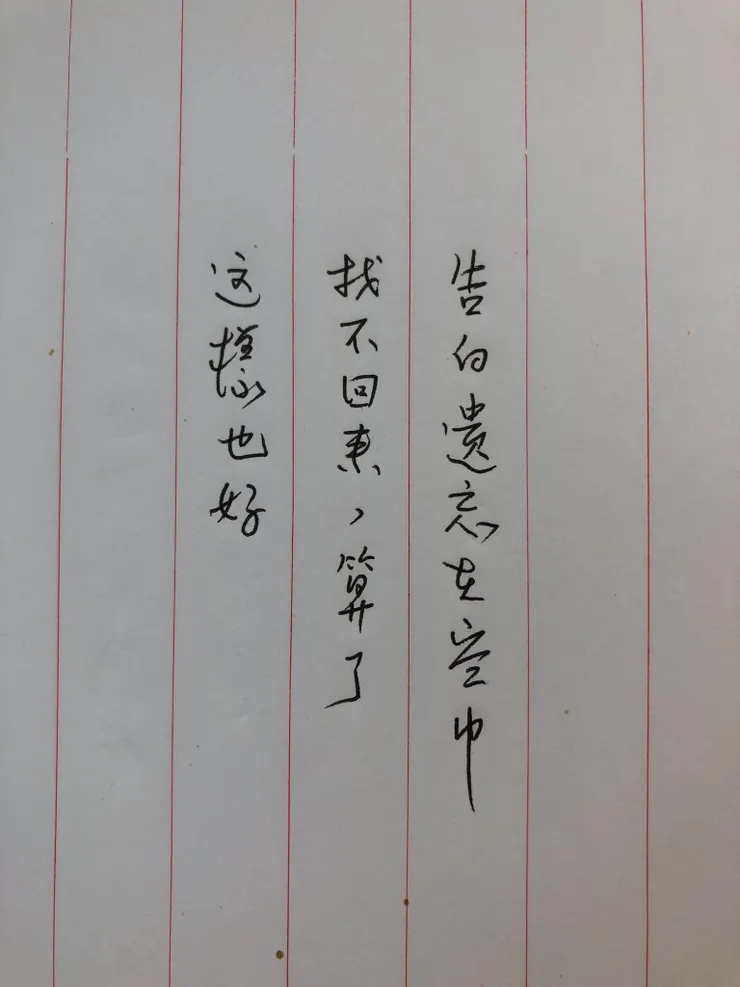 告白遗忘在空中
找不回来，算了
这樣也好